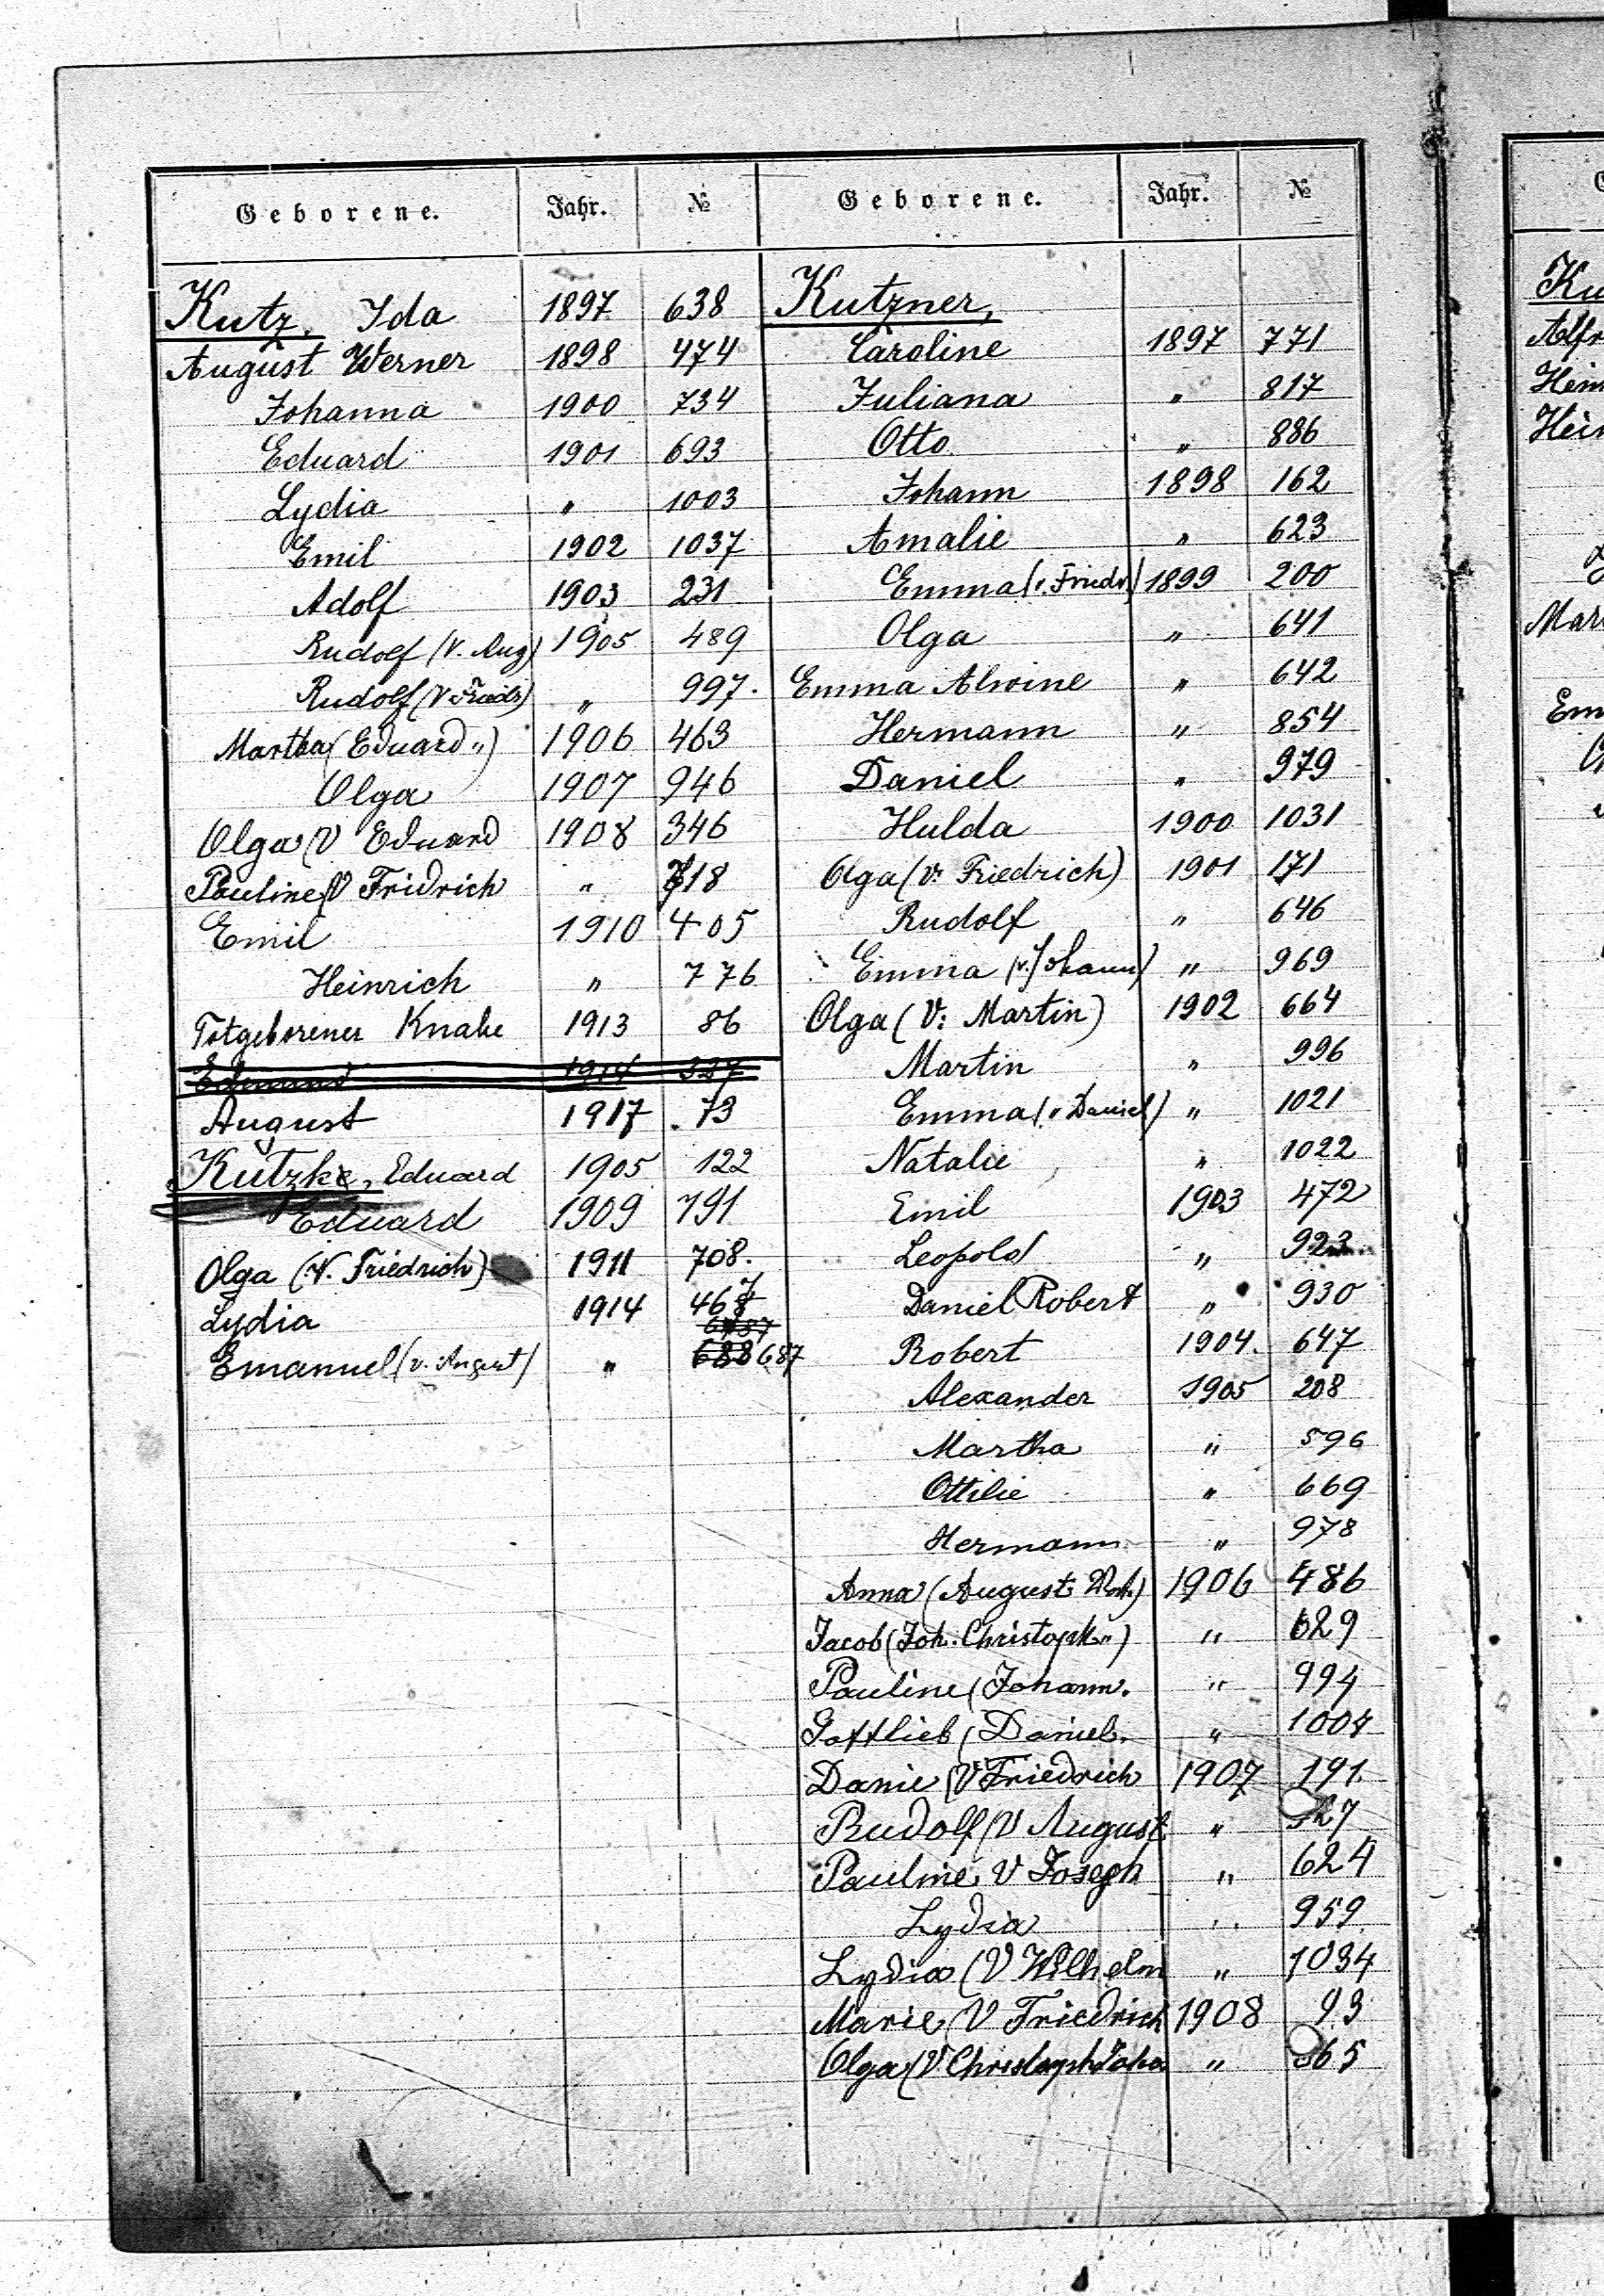 Geborene. Jahr. №
Kutz, Ida 1897 638
August Werner 1898 474
Johanna 1900 734
Eduard 1901 693
Lydia " 1003
Emil 1902 1037
Adolf 1903 231
Rudolf (V. Aug) 1905 489
Rudolf (V Friedr) " 997.
Martha (Eduard ") 1906 463
Olga 1907 946
Olga (V Eduard 1908 346
Pauline (V Fridrich " 718
Emil 1910 405
Heinrich " 776
Totgeborener Knabe 1913 86
Edmund 1914 327
August 1917 73
Kutzke, Eduard 1905 122
Eduard 1909 791
Olga (V. Friedrich) 1911 708.
Lydia 1914 467
Emanuel (v. August) " 688 687
Geborene. Jahr. №
Kutzner,
Caroline 1897 771
Juliana " 817
Otto " 886
Johann 1898 162
Amalie " 623
Emma (v. Friedr.) 1899 200
Olga " 641
Emma Alwine " 642
Hermann " 854
Daniel " 979
Hulda 1900 1031
Olga (v. Friedrich) 1901 171
Rudolf " 646
Emma (v. Johann) " 969
Olga (V: Martin) 1902 664
Martin " 996
Emma (v Daniel) " 1021
Natalie " 1022
Emil 1903 472
Leopold " 923
Daniel Robert " 930
Robert 1904. 647
Alexander 1905 208
Martha " 596
Ottilie " 669
Hermann " 978
Anna (August ) 1906 486
Jacob (Joh. Christoph ") " 629
Pauline (Johann. " 994
Gottlieb (Daniel. " 1004
Danie (V Friedrich 1907 191
Rudolf (V August " 27
Pauline V Joseph " 624
Lydia " 959
Lydia (V Wilhelm " 1034
Marie (V Friedrich 1908 93
Olga (V Christoph " 65
Ku
Alfr
Hein
Hein
Mar
Em